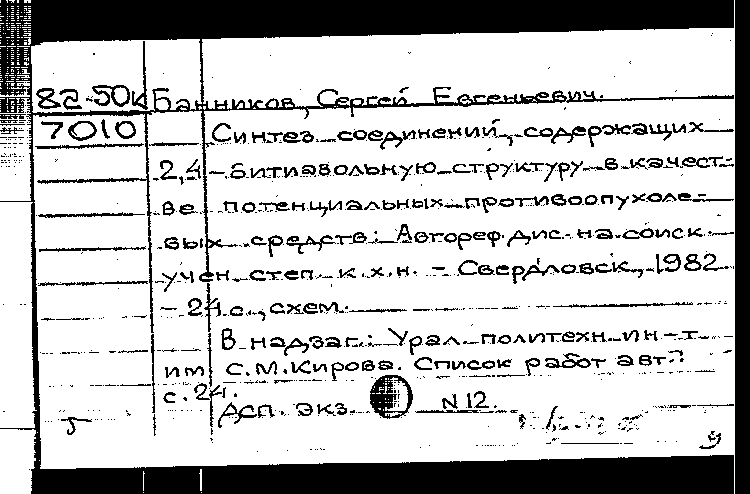 82-50к Банников, Сергей Евгеньевич.
7010 Синтез соединений, содержащих
2,4-битиазольную структуру в качест-
ве потенциальных противоопухоле-
вых средств: Автореф. дис. на соиск.
учен. степ. к.х.н. - Свердловск, 1982
- 24 с., схем.
В надзаг.: Урал. политехн. ин-т
им. С.М. Кирова. Список работ авт.:
с. 24.
ДСП. экз. N 12.